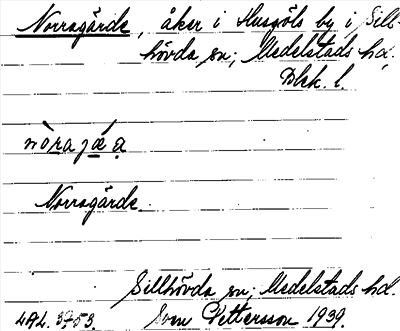 Norragärde, åker i Husgöls by i Sill-
hövda sn; Medelstads hd.
Blek. l.
nòraj
Norragärde
Sillhövda sn; Medelstads hd.
LAL. 3753. Sven Pettersson 1939.